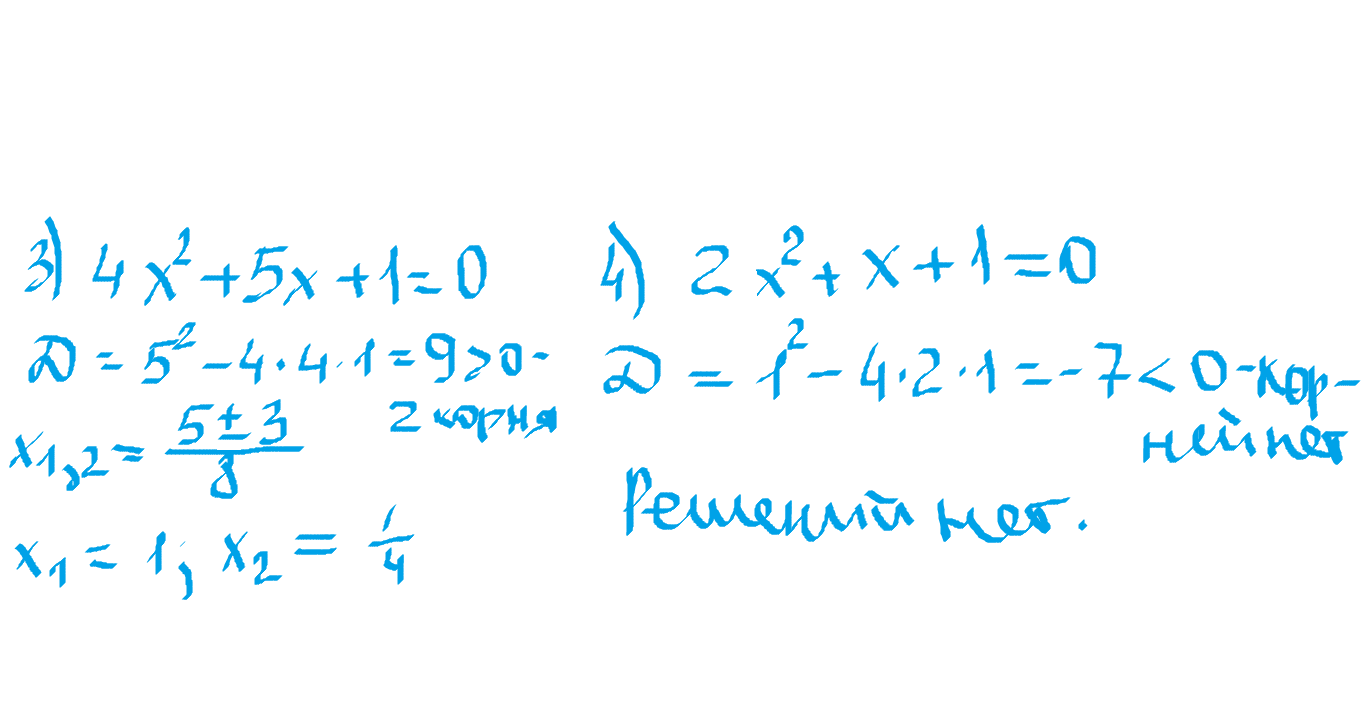 3) 4x²+5x+1=0
D = 5²-4·4·1=9>0-
2 корня
x₁,₂ = (5±3)/8
x₁ = 1; x₂ = 1/4
4) 2x²+x+1=0
D = 1²-4·2·1=-7<0-кор-
ней нет
Решений нет.